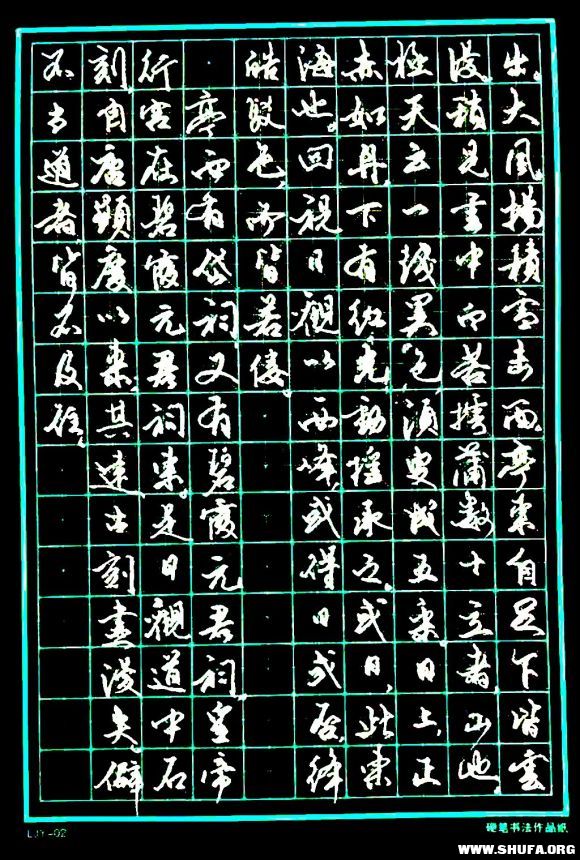 出。大風。揚積雪击面。亭東自足下皆雲
漫。稍見雲中白若摴蒲數十立者,山也。
極天雲一線異色,須臾成五采。日上,正
赤如丹,下有紅光,動摇承之。或曰,此東
海也。回視日觀以西峰,或得日或否,絳
皓駁色,而皆若僂。
亭西有岱祠,又有碧霞元君祠。皇帝
行宫在碧霞元君祠東。是日觀道中石
刻,自唐顯慶以來,其遠古刻盡漫失。僻
不當道者,皆不及往。
硬笔书法作品纸
WWW.SHUFA.ORG